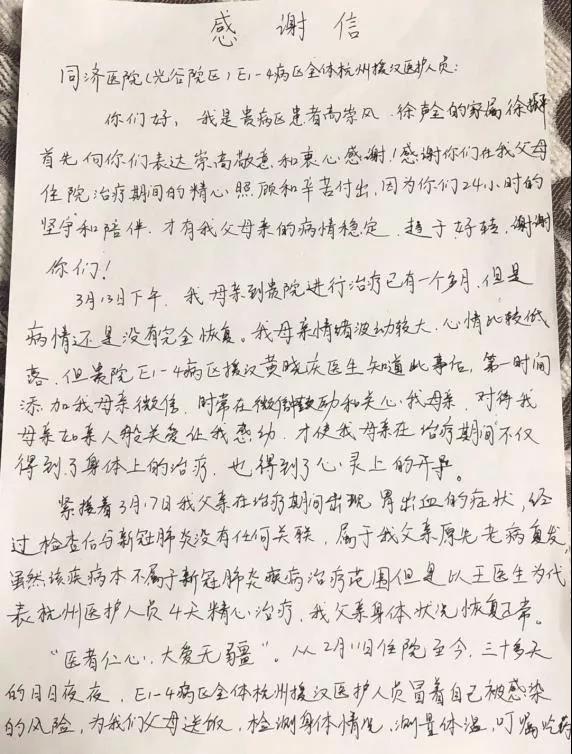 感谢信
同济医院(光谷院区)E1-4病区全体杭州援汉医护人员:
你们好,我是贵病区患者高崇风、徐声全的家属徐
首先向你们表达崇高敬意和衷心感谢!感谢你们在我父母
住院治疗期间的精心照顾和辛苦付出,因为你们24小时的
坚守和陪伴.才有我父母亲的病情稳定、趋于好转,谢谢
你们!
3月13日下午,我母亲到贵院进行治疗已有一个多月,但是
病情还是没有完全恢复。我母亲情绪波动较大,心情比较低
落.但贵院E1-4病区援汉黄晓庆医生知道此事后,第一时间
添加我母亲微信,时常在微信和关心我母亲,对待我
母亲如亲人般关爱让我感动,才使我母亲在治疗期间不仅
得到了身体上的治疗,也得到了心灵上的开导。
紧接着3月17日我父亲在治疗期间出现胃出血的症状,经
过检查后与新冠肺炎没有任何关联,属于我父亲原先老病复发,
虽然该疾病本不属于新冠肺炎疾病治疗范围但是以王医生为代
表杭州医护人员4天精心治疗,我父亲身体状况恢复正常。
“医者仁心,大爱无疆”。从2月11日住院至今,三十多天
的日日夜夜,E1-4病区全体杭州援汉医护人员冒着自己被感染
的风险,为我们父母送饭,检测身体情况,测量体温,叮嘱吃药